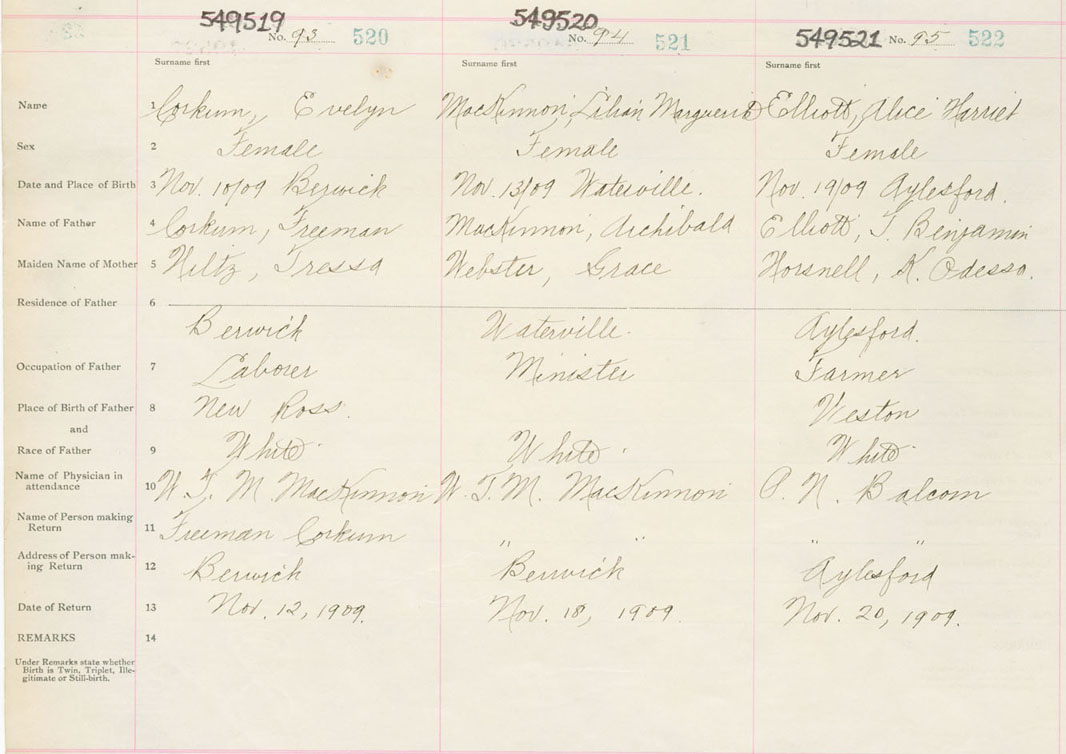 549519 549520 549521
No. 93 520 No. 94 521 No. 95 522
Surname first Surname first Surname first
Name 1 Corkum, Evelyn MacKinnon, Lilian Marguerite Elliott, Alice Harriet
Sex 2 Female Female Female
Date and Place of Birth 3 Nov. 10/09 Berwick Nov. 13/09 Waterville. Nov. 19/09 Aylesford.
Name of Father 4 Corkum, Freeman MacKinnon, Archibald Elliott, J. Benjamin
Maiden Name of Mother 5 Hiltz, Tressa Webster, Grace Horsnell, K. Odessa.
Residence of Father 6
Berwick Waterville. Aylesford.
Occupation of Father 7 Laborer Minister Farmer
Place of Birth of Father 8 New Ross. Weston
and
Race of Father 9 White White White
Name of Physician in
attendance 10 W. T. M. MacKinnon W. T. M. MacKinnon P. N. Balcom
Name of Person making
Return 11 Freeman Corkum " " " "
Address of Person mak-
ing Return 12 Berwick Berwick Aylesford
Date of Return 13 Nov. 12, 1909. Nov. 18, 1909. Nov. 20, 1909.
REMARKS 14
Under Remarks state whether
Birth is Twin, Triplet, Ille-
gitimate or Still-birth.